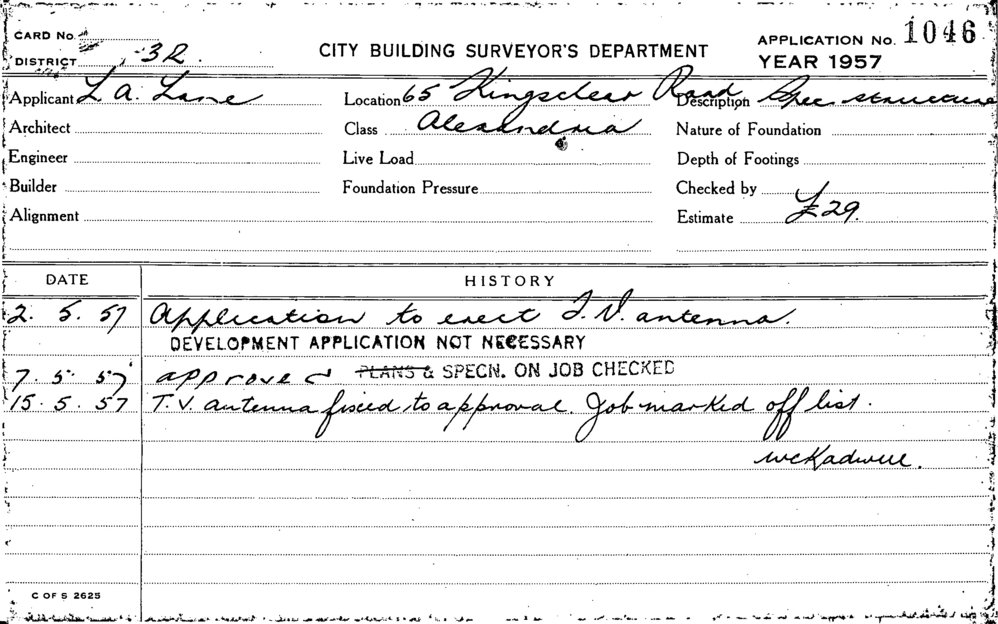 CARD No.
DISTRICT 32.
CITY BUILDING SURVEYOR'S DEPARTMENT
APPLICATION No. 1046
YEAR 1957
Applicant L. A. Lane
Location 65 Kingsclear Road
Description Spec. structure
Architect
Class Alexandria
Nature of Foundation
Engineer
Live Load
Depth of Footings
Builder
Foundation Pressure
Checked by
Alignment
Estimate £29.
DATE HISTORY
2. 5. 57 Application to erect T.V. antenna.
DEVELOPMENT APPLICATION NOT NECESSARY
7. 5. 57 approved PLANS & SPECN. ON JOB CHECKED
15. 5. 57 T.V. antenna fixed to approval. Job marked off list.
C OF S 2625